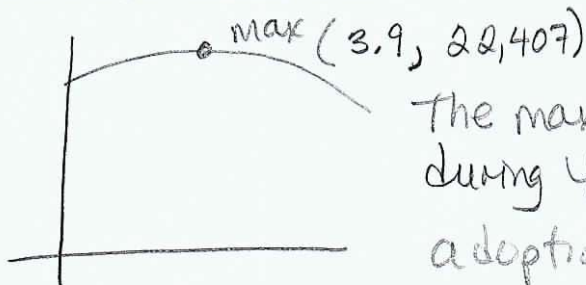 max (3.9, 22,407)
The max
during
adoptio